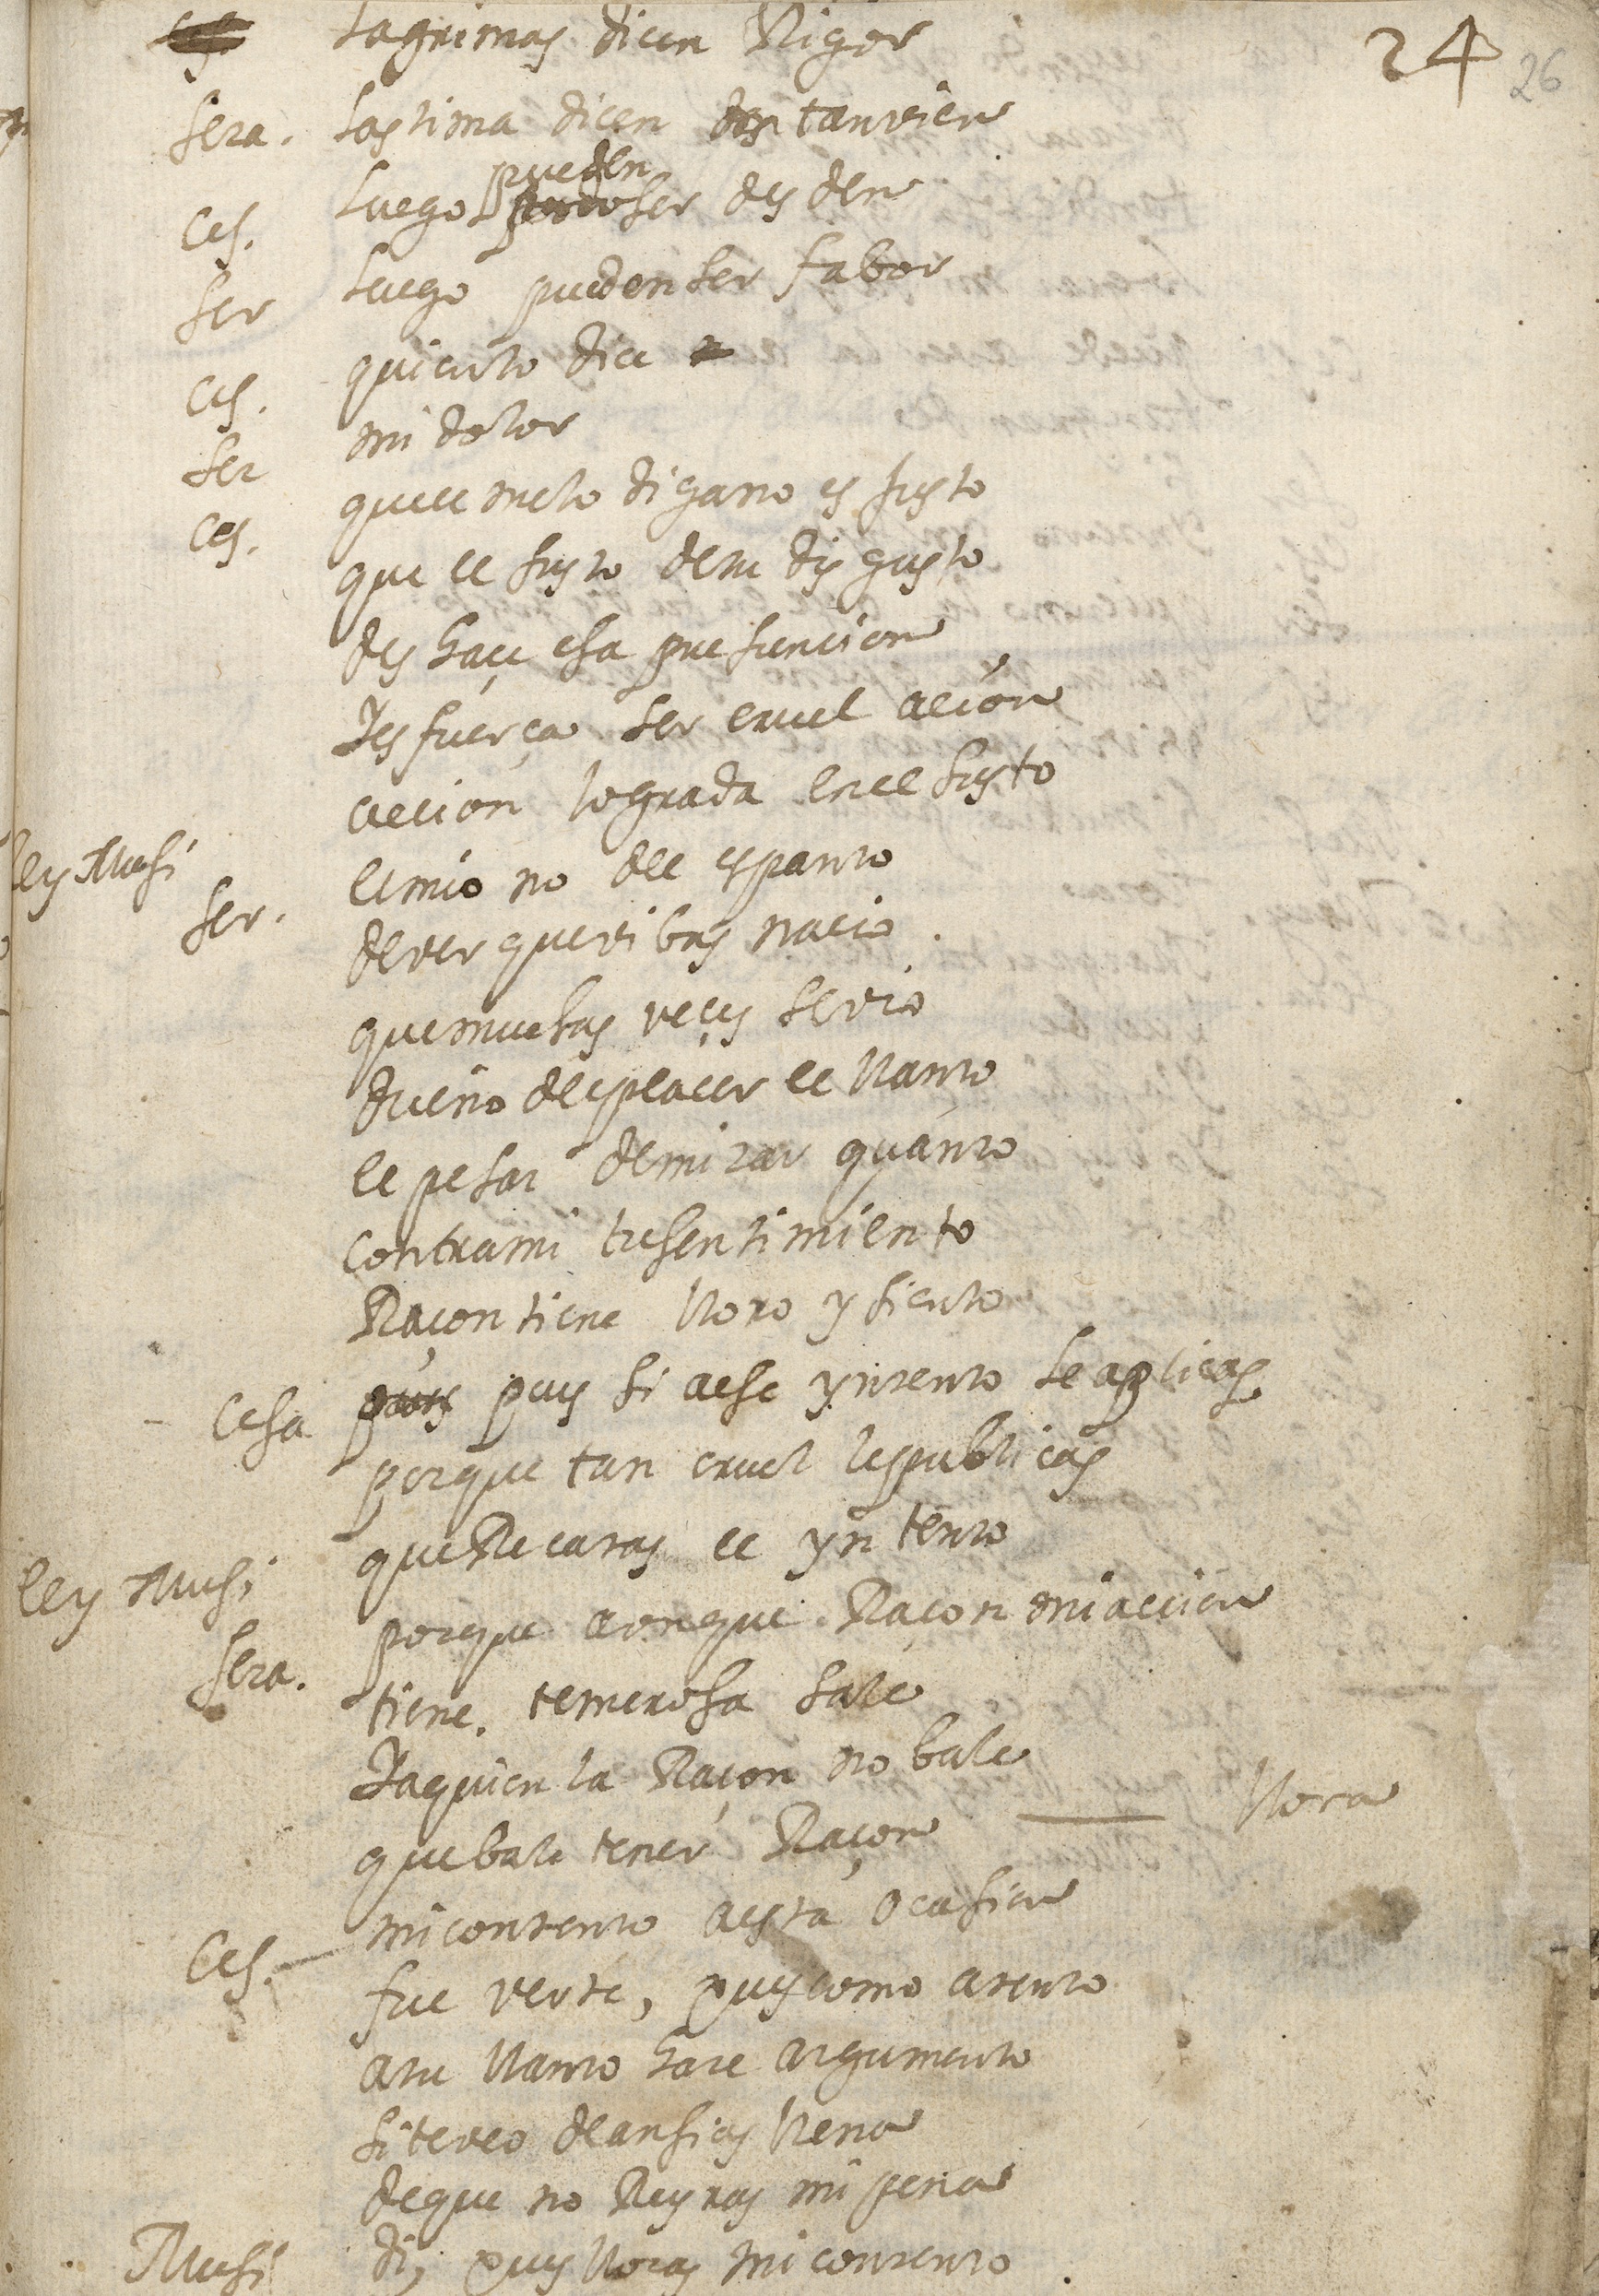 24 26
lagrimas dicen Rigor
Sera. lastima dicen tanvien
pueden
Ces. luego ser desden
Ser luego pueden ser fabor
Ces. quiento dice
Ser mi dolor
Ces. quee melo digano es justo
que el susto detu disgusto
des haçe esa presuncion
Jes fuerça ser cruel acion
accion lograda en el susto
ley Musi el mio no del espanto
Ser. de ver que vibas nacio.
que muchas veçes se vio
dueño del plaçer el llanto
el pesar de mirar quanto
contra mi tu sentimiento
Raçon tiene lloro y siento
Cesa pues si a ese yntento te aplicas
porque tan cruel les publicas
que Recatas el yntento
ley Musi
Sera. porque aunque Raçon mi accion
tiene. temerosa sale
Ja quien la Raçon no bale
que bale tener Raçon — llora
Ces. mi contento a esta ocasion
fue verte, pues como atento
a tu llanto hare argumento
si te veo de ansias llena
de que no Reynas mi pena
Musi di, pues lloras mi contento.